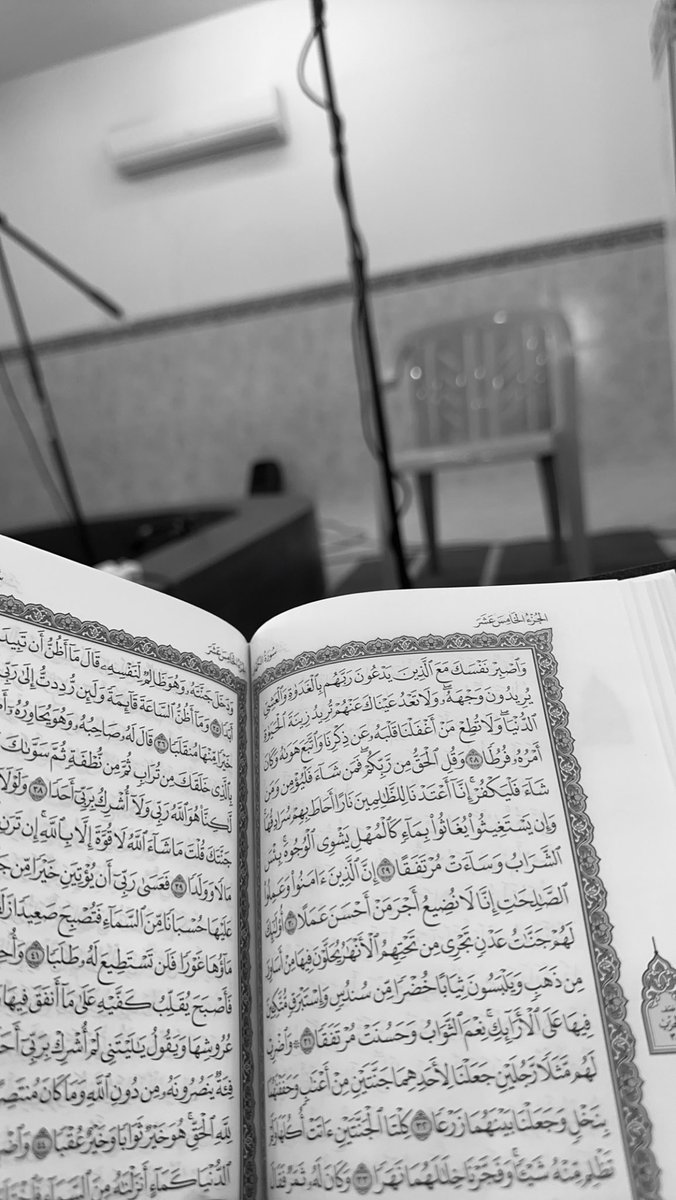 الجزء الخامس عشر
وَٱصۡبِرۡ نَفۡسَكَ مَعَ ٱلَّذِينَ يَدۡعُونَ رَبَّهُم بِٱلۡغَدَوٰةِ وَٱلۡعَشِيِّ
يُرِيدُونَ وَجۡهَهُۥۖ وَلَا تَعۡدُ عَيۡنَاكَ عَنۡهُمۡ تُرِيدُ زِينَةَ ٱلۡحَيَوٰةِ
ٱلدُّنۡيَاۖ وَلَا تُطِعۡ مَنۡ أَغۡفَلۡنَا قَلۡبَهُۥ عَن ذِكۡرِنَا وَٱتَّبَعَ هَوَىٰهُ وَكَانَ
أَمۡرُهُۥ فُرُطٗا ٢٨ وَقُلِ ٱلۡحَقُّ مِن رَّبِّكُمۡۖ فَمَن شَآءَ فَلۡيُؤۡمِن وَمَن
شَآءَ فَلۡيَكۡفُرۡۚ إِنَّآ أَعۡتَدۡنَا لِلظَّٰلِمِينَ نَارًا أَحَاطَ بِهِمۡ سُرَادِقُهَاۚ
وَإِن يَسۡتَغِيثُواْ يُغَاثُواْ بِمَآءٖ كَٱلۡمُهۡلِ يَشۡوِي ٱلۡوُجُوهَۚ بِئۡسَ
ٱلشَّرَابُ وَسَآءَتۡ مُرۡتَفَقًا ٢٩ إِنَّ ٱلَّذِينَ ءَامَنُواْ وَعَمِلُواْ
ٱلصَّٰلِحَٰتِ إِنَّا لَا نُضِيعُ أَجۡرَ مَنۡ أَحۡسَنَ عَمَلًا ٣٠ أُوْلَٰٓئِكَ
لَهُمۡ جَنَّٰتُ عَدۡنٖ تَجۡرِي مِن تَحۡتِهِمُ ٱلۡأَنۡهَٰرُ يُحَلَّوۡنَ فِيهَا مِنۡ أَسَاوِرَ
مِن ذَهَبٖ وَيَلۡبَسُونَ ثِيَابًا خُضۡرٗا مِّن سُندُسٖ وَإِسۡتَبۡرَقٖ مُّتَّكِـِٔينَ
فِيهَا عَلَى ٱلۡأَرَآئِكِۚ نِعۡمَ ٱلثَّوَابُ وَحَسُنَتۡ مُرۡتَفَقٗا ٣١ وَٱضۡرِبۡ
لَهُم مَّثَلٗا رَّجُلَيۡنِ جَعَلۡنَا لِأَحَدِهِمَا جَنَّتَيۡنِ مِنۡ أَعۡنَٰبٖ وَحَفَفۡنَٰهُمَا
بِنَخۡلٖ وَجَعَلۡنَا بَيۡنَهُمَا زَرۡعٗا ٣٢ كِلۡتَا ٱلۡجَنَّتَيۡنِ ءَاتَتۡ أُكُلَهَا وَلَمۡ
تَظۡلِم مِّنۡهُ شَيۡـٔٗاۚ وَفَجَّرۡنَا خِلَٰلَهُمَا نَهَرٗا ٣٣ وَكَانَ لَهُۥ ثَمَرٞ فَقَالَ
وَدَخَلَ جَنَّتَهُۥ وَهُوَ ظَالِمٞ لِّنَفۡسِهِۦ قَالَ مَآ أَظُنُّ أَن تَبِيدَ
أَبَدٗا ٣٥ وَمَآ أَظُنُّ ٱلسَّاعَةَ قَآئِمَةٗ وَلَئِن رُّدِدتُّ إِلَىٰ رَبِّي
خَيۡرٗا مِّنۡهَا مُنقَلَبٗا ٣٦ قَالَ لَهُۥ صَاحِبُهُۥ وَهُوَ يُحَاوِرُهُۥٓ
بِٱلَّذِي خَلَقَكَ مِن تُرَابٖ ثُمَّ مِن نُّطۡفَةٖ ثُمَّ سَوَّىٰكَ
لَّٰكِنَّا۠ هُوَ ٱللَّهُ رَبِّي وَلَآ أُشۡرِكُ بِرَبِّيٓ أَحَدٗا ٣٨ وَلَوۡلَآ
جَنَّتَكَ قُلۡتَ مَا شَآءَ ٱللَّهُ لَا قُوَّةَ إِلَّا بِٱللَّهِۚ إِن تَرَنِ
مَالٗا وَوَلَدٗا ٣٩ فَعَسَىٰ رَبِّيٓ أَن يُؤۡتِيَنِ خَيۡرٗا مِّن
عَلَيۡهَا حُسۡبَانٗا مِّنَ ٱلسَّمَآءِ فَتُصۡبِحَ صَعِيدٗا
مَآؤُهَا غَوۡرٗا فَلَن تَسۡتَطِيعَ لَهُۥ طَلَبٗا ٤١
فَأَصۡبَحَ يُقَلِّبُ كَفَّيۡهِ عَلَىٰ مَآ أَنفَقَ فِيهَا
عُرُوشِهَا وَيَقُولُ يَٰلَيۡتَنِي لَمۡ أُشۡرِكۡ بِرَبِّيٓ
فِئَةٞ يَنصُرُونَهُۥ مِن دُونِ ٱللَّهِ وَمَا كَانَ
لِلَّهِ ٱلۡحَقِّۚ هُوَ خَيۡرٞ ثَوَابٗا وَخَيۡرٌ عُقۡبٗا ٤٤
ٱلدُّنۡيَا كَمَآءٍ أَنزَلۡنَٰهُ مِنَ ٱلسَّمَآءِ